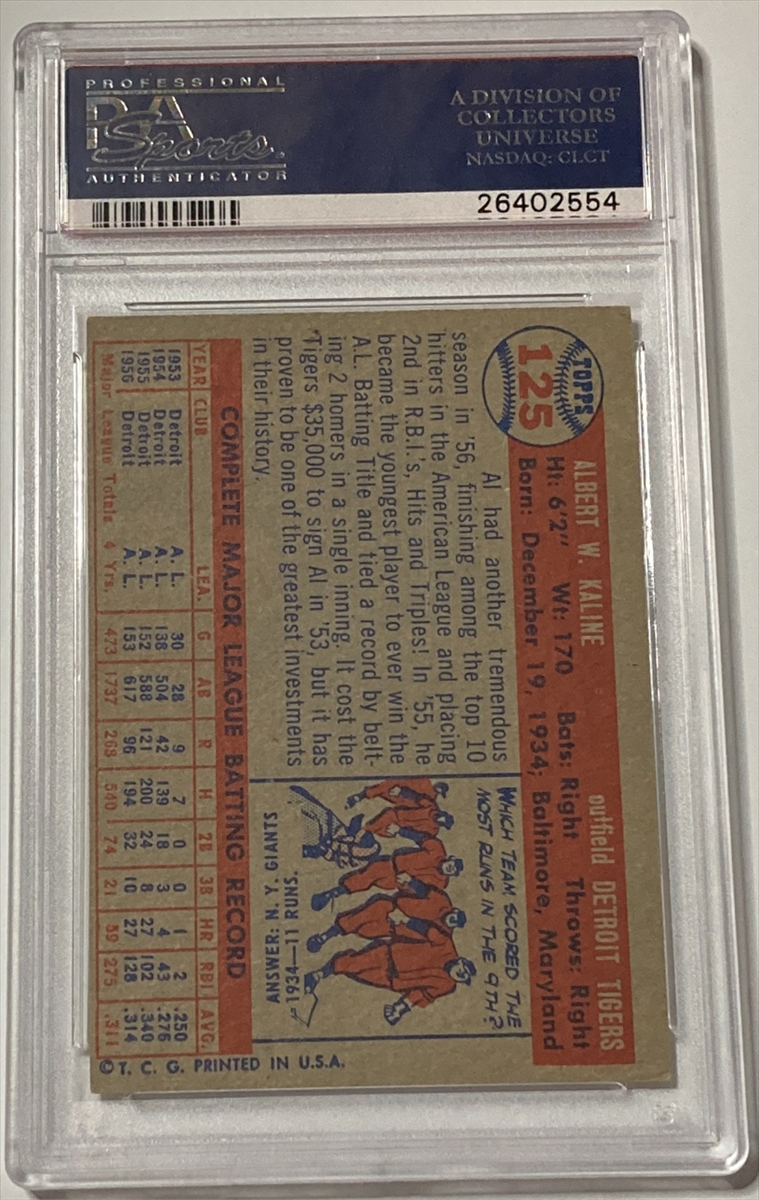 PROFESSIONAL
PSA
Sports
AUTHENTICATOR
A DIVISION OF
COLLECTORS
UNIVERSE
NASDAQ: CLCT
26402554
TOPPS
125
ALBERT W. KALINE outfield DETROIT TIGERS
Ht: 6'2" Wt: 170 Bats: Right Throws: Right
Born: December 19, 1934; Baltimore, Maryland
Al had another tremendous
season in '56, finishing among the top 10
hitters in the American League and placing
2nd in R.B.I.'s, Hits and Triples! In '55, he
became the youngest player to ever win the
A.L. Batting Title and tied a record by belt-
ing 2 homers in a single inning. It cost the
Tigers $35,000 to sign Al in '53, but it has
proven to be one of the greatest investments
in their history.
WHICH TEAM SCORED THE
MOST RUNS IN THE 9TH?
ANSWER: N.Y. GIANTS
1934—11 RUNS.
COMPLETE MAJOR LEAGUE BATTING RECORD
YEAR CLUB LEA. G AB R H 2B 3B HR RBI AVG.
1953 Detroit A. L. 30 28 9 7 0 0 1 2 .250
1954 Detroit A. L. 138 504 42 139 18 3 4 43 .276
1955 Detroit A. L. 152 588 121 200 24 8 27 102 .340
1956 Detroit A. L. 153 617 96 194 32 10 27 128 .314
Major League Totals 4 Yrs. 473 1737 268 540 74 21 59 275 .311
© T. C. G. PRINTED IN U.S.A.